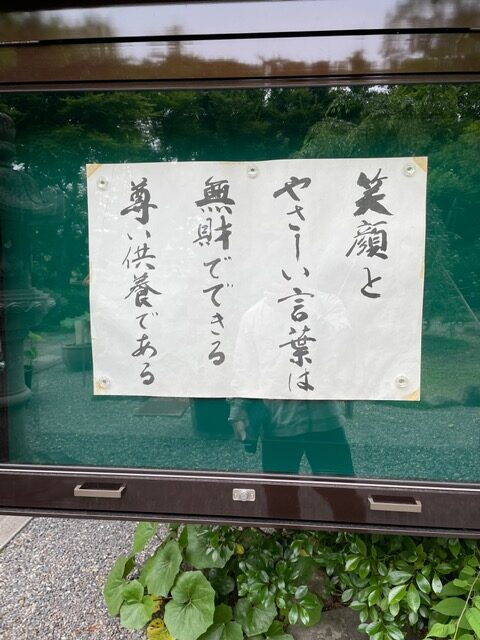 笑顔と
やさしい言葉は
無財でできる
尊い供養である